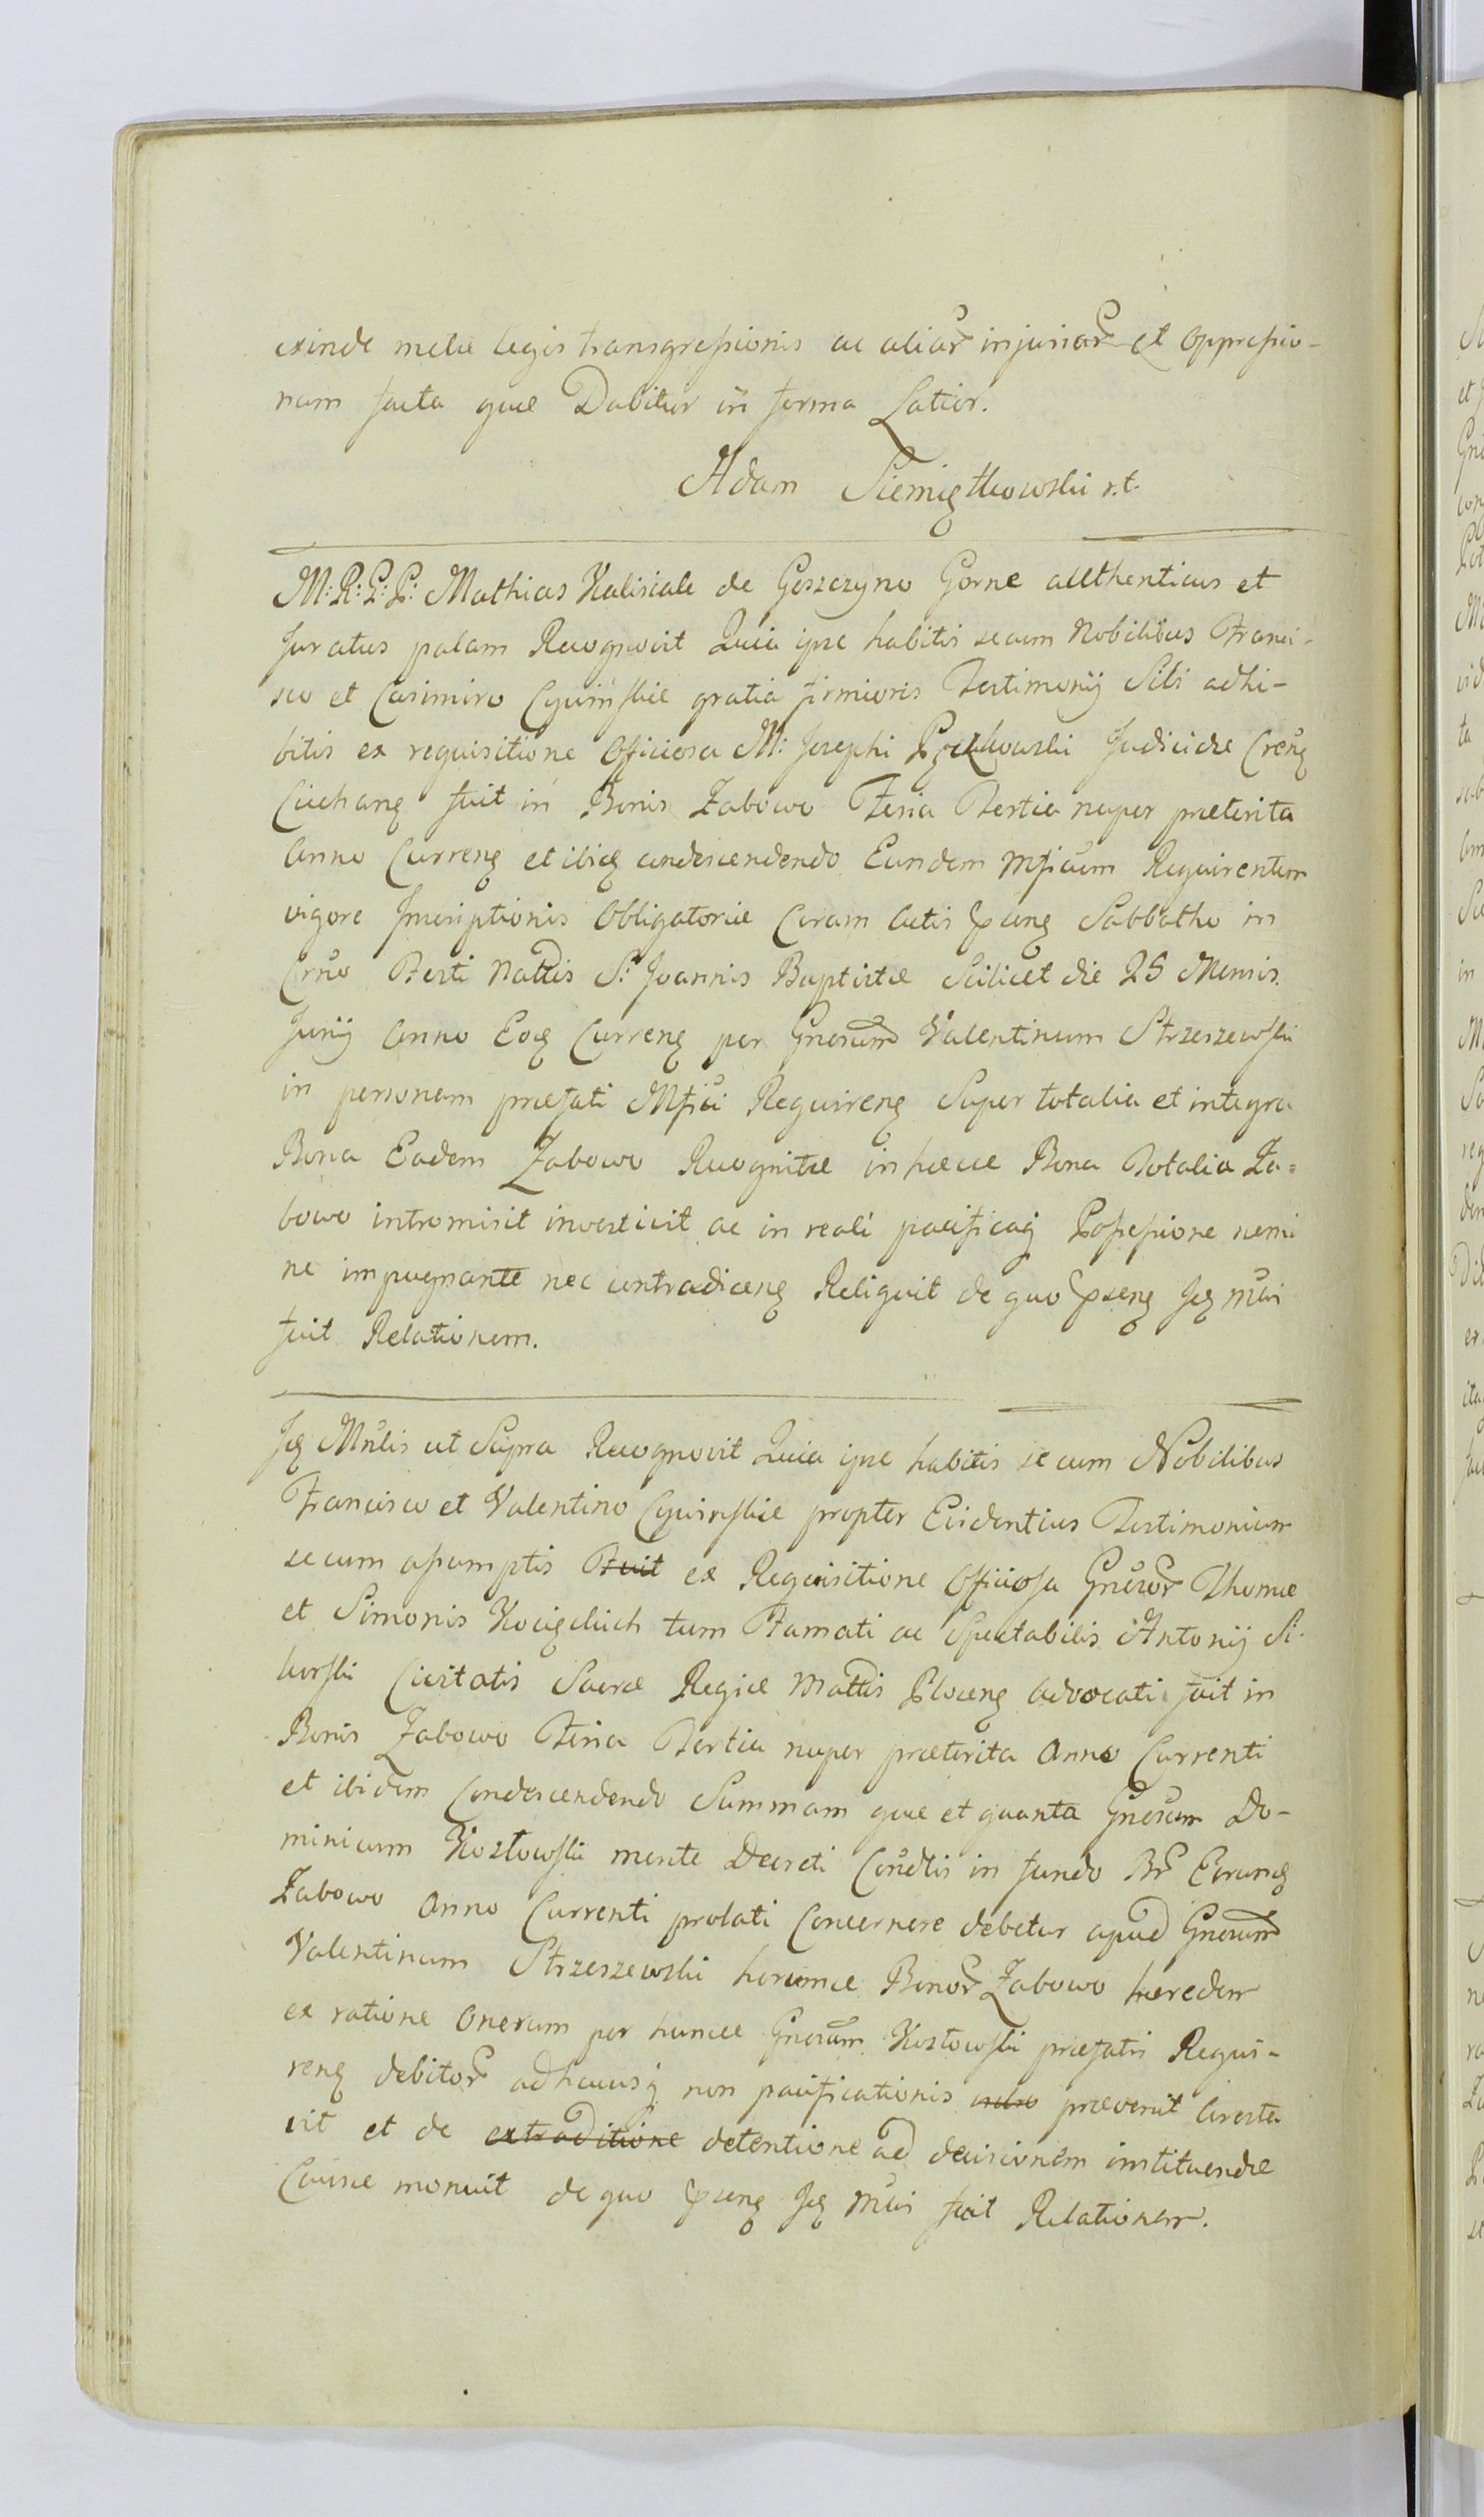 exinde metæ legis transgressionis ac aliar injuriar et oppressio-
num facta quæ Dabitur in forma Latior.
Adam Siemiątkowski r.t.
M: R: G: P: Mathias Kalisiak de Goszczyno Gorne authenticus et
Juratus palam Recognovit Quia ipse habitis secum Nobilibus Franci-
sco et Casimiro Cywinskie gratia firmioris Testimonij Sibi adhi-
bitis ex requisitione Officiosa M: Josephi Judicidæ Creñ
Ciechanę fuit in Bonis Zabowo Feria Tertia nuper præterita
Anno Currenę et ibiq condescendendo Eundem Mficum Requirentem
vigore Inscriptionis Obligatoriæ Coram Actis pseng Sabbatho in
Crño Festi Nattis S: Joannis Baptistæ Scilicet die 25 Mensis
Junij Anno Eoq Curreng per Gnosum Valentinum Strzeszewski
in personam præfati Mfici Requireng Super totalia et integra
Bona Eadem Zabowo Recognitæ in hæcce Bona Totalia Za=
bowo intromisit investivit ac in reali pacificaq Possessione nemi
ne impugnante nec contradiceng Reliquit de quo pseng Jq Mũi
fuit Relationem.
Jq Mñlis ut Supra Recognovit Quia ipse habitis secum Nobilibus
Francisco et Valentino Cywinskie propter Evidentius Testimonium
secum assumptis Fuit ex Requisitione Officiosa Gnũror Thomæ
et Simonis tum Famati ac Spectabilis Antonij Si-
korski Civitatis Sacræ Regiæ Mattis Ploceng Advocati fuit in
Bonis Zabowo Feria Tertia nuper præterita Anno Currenti
et ibidem Condescendendo Summam quæ et quanta Gnosum Do-
minicum Kozłowski mente Decreti Conđtis in fundo Br Eorunq
Zabowo Anno Currenti prolati Concernere debetur apud Gnosum
Valentinum Strzeszewski horumce Bonor Zabowo hæredem
ex ratione Onerum per huncce Gnosum Kozłowski præfatis Requi-
reng debitor adhucusq non pacificationis prævenit Aresta
vit et de extraditione detentione ad decisionem instituendæ
Causæ monuit de quo pseng Jq Mũi fuit Relationem.